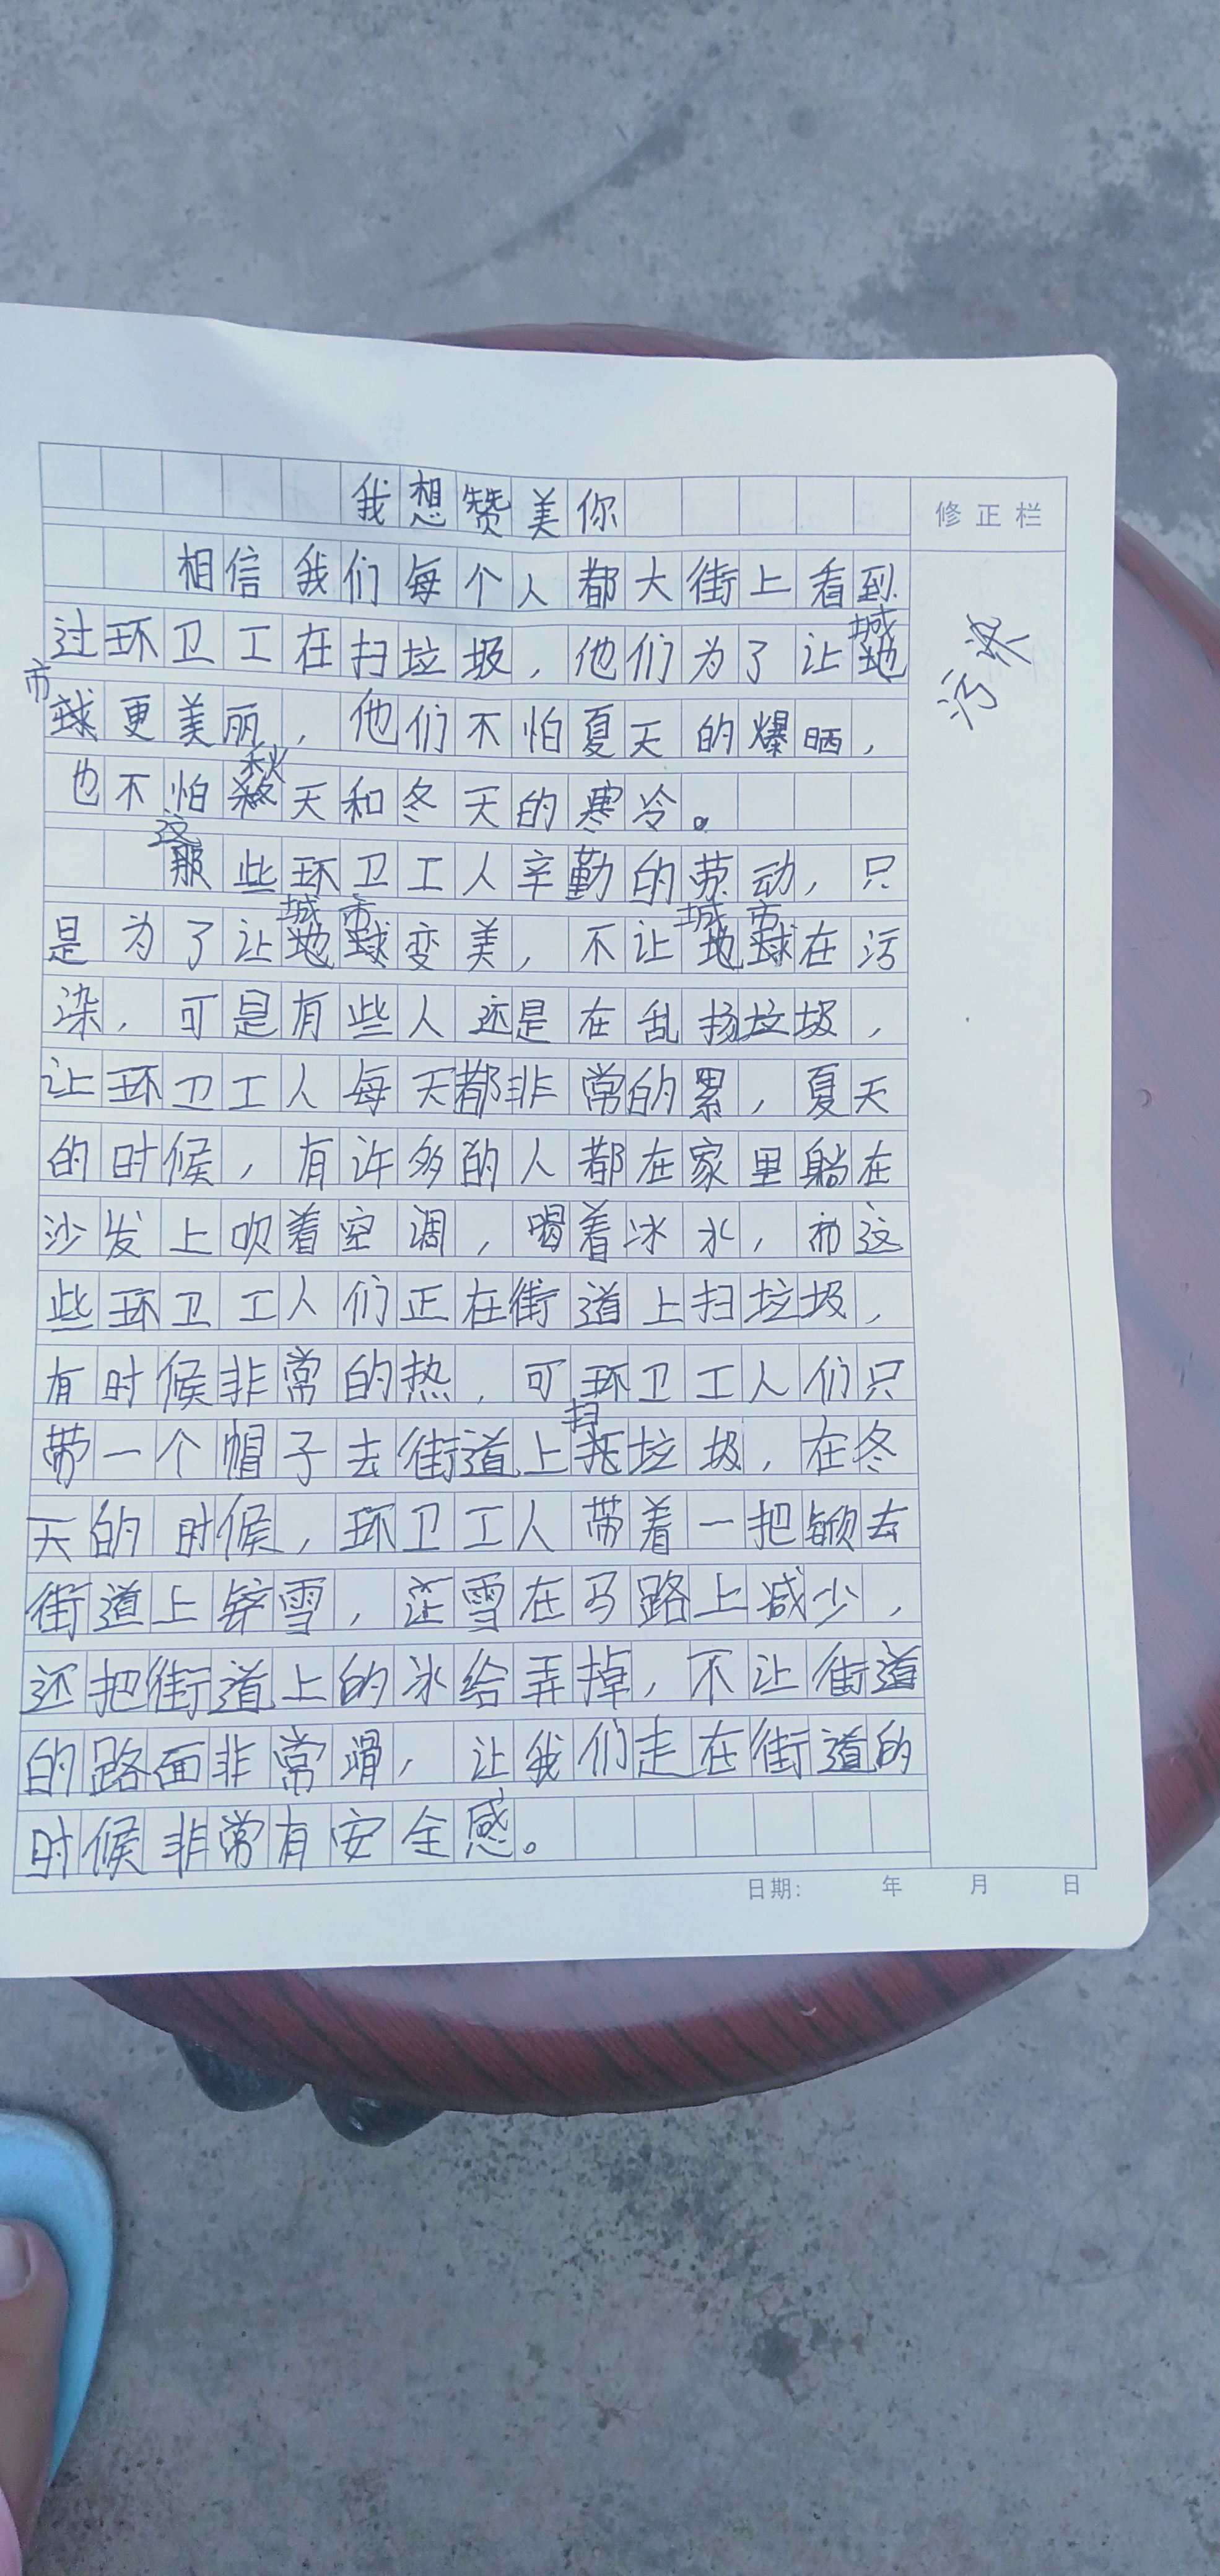 我想赞美你
修正栏
相信我们每个人都大街上看到
城
过环卫工在扫垃圾，他们为了让地
市
污染
球更美丽，他们不怕夏天的爆晒，
秋
也不怕天和冬天的寒冷。
这
那些环卫工人辛勤的劳动，只
城市 城市
是为了让地球变美，不让地球在污
染，可是有些人还是在乱扬垃圾，
让环卫工人每天都非常的累，夏天
的时候，有许多的人都在家里躺在
沙发上吹着空调，喝着冰水，而这
些环卫工人们正在街道上扫垃圾，
有时候非常的热，可环卫工人们只
扫
带一个帽子去街道上垃圾，在冬
天的时候，环卫工人带着一把锨去
街道上雪，雪在马路上减少，
还把街道上的冰给弄掉，不让街道
的路面非常滑，让我们走在街道的
时候非常有安全感。
日期： 年 月 日